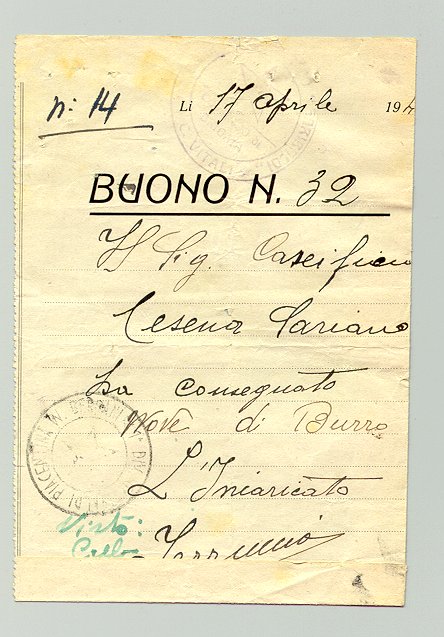 n: 14
Li 17 aprile 194
BUONO N. 32
Il Sig. Caseificio
Cesena Sariano
ha consegnato
Nove di Burro
L'Incaricato
Visto: